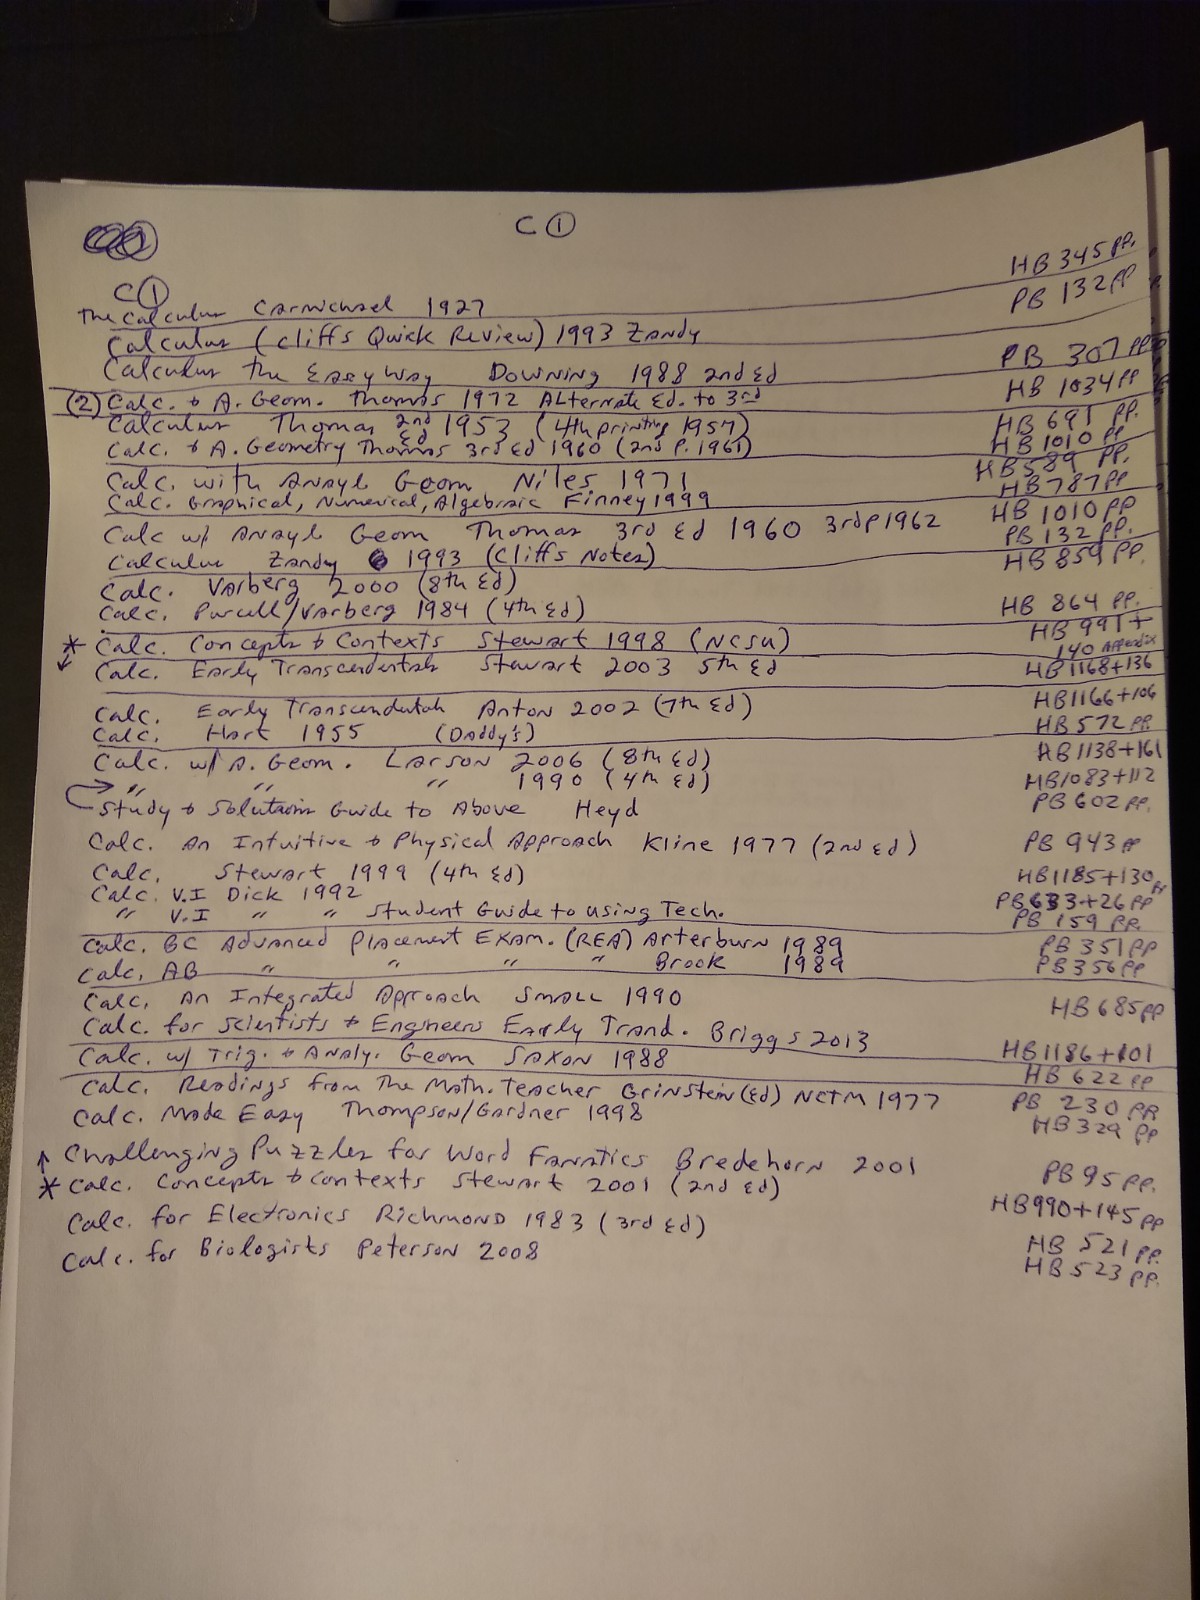 C ①
C ①
The Calculus Carmichael 1927 HB 345 pp.
Calculus (Cliffs Quick Review) 1993 Zandy PB 132 pp
Calculus the Easy Way Downing 1988 2nd Ed PB 307 pp
(2) Calc. & A. Geom. Thomas 1972 Alternate Ed. to 3rd HB 1034 pp
Calculus Thomas 2nd Ed 1953 (4th printing 1957) HB 691 pp.
Calc. & A. Geometry Thomas 3rd Ed 1960 (2nd P. 1961) HB 1010 pp
Calc. with Analyt Geom Niles 1971 HB 589 pp.
Calc. Graphical, Numerical, Algebraic Finney 1999 HB 787 pp
Calc w/ Analyt Geom Thomas 3rd Ed 1960 3rd P 1962 HB 1010 pp
Calculus Zandy 1993 (Cliffs Notes) PB 132 pp.
Calc. Varberg 2000 (8th Ed) HB 859 pp.
Calc. Purcell/Varberg 1984 (4th Ed) HB 864 pp.
* Calc. Concepts & Contexts Stewart 1998 (NCSU) HB 991 + 140 Appendix
↓ Calc. Early Transcendentals Stewart 2003 5th Ed HB 1168+136
Calc. Early Transcendentals Anton 2002 (7th Ed) HB 1166+106
Calc. Hart 1955 (Daddy's) HB 572 pp.
Calc. w/ A. Geom. Larson 2006 (8th Ed) HB 1138+161
" " " 1990 (4th Ed) HB 1083+112
Study & Solutions Guide to Above Heyd PB 602 pp.
Calc. An Intuitive & Physical Approach Kline 1977 (2nd Ed) PB 943 pp
Calc. Stewart 1999 (4th Ed) HB 1185+130 pp
Calc. V.I Dick 1992 PB 633+26 pp
" V.I " " Student Guide to using Tech. PB 159 pp.
Calc. BC Advanced Placement Exam. (REA) Arterburn 1989 PB 351 pp
Calc. AB " " " " Brook 1989 PB 356 pp
Calc. An Integrated Approach Small 1990 HB 685 pp
Calc. for Scientists & Engineers Early Trand. Briggs 2013 HB 1186+101
Calc. w/ Trig. & Analy. Geom Saxon 1988 HB 622 pp
Calc. Readings from The Math. Teacher Grinstein (Ed) NCTM 1977 PB 230 pp
Calc. Made Easy Thompson/Gardner 1998 HB 329 pp
↑ Challenging Puzzles for Word Fanatics Bredehorn 2001 PB 95 pp.
* Calc. Concepts & Contexts Stewart 2001 (2nd Ed) HB 990+145 pp
Calc. for Electronics Richmond 1983 (3rd Ed) HB 521 pp.
Calc. for Biologists Peterson 2008 HB 523 pp.